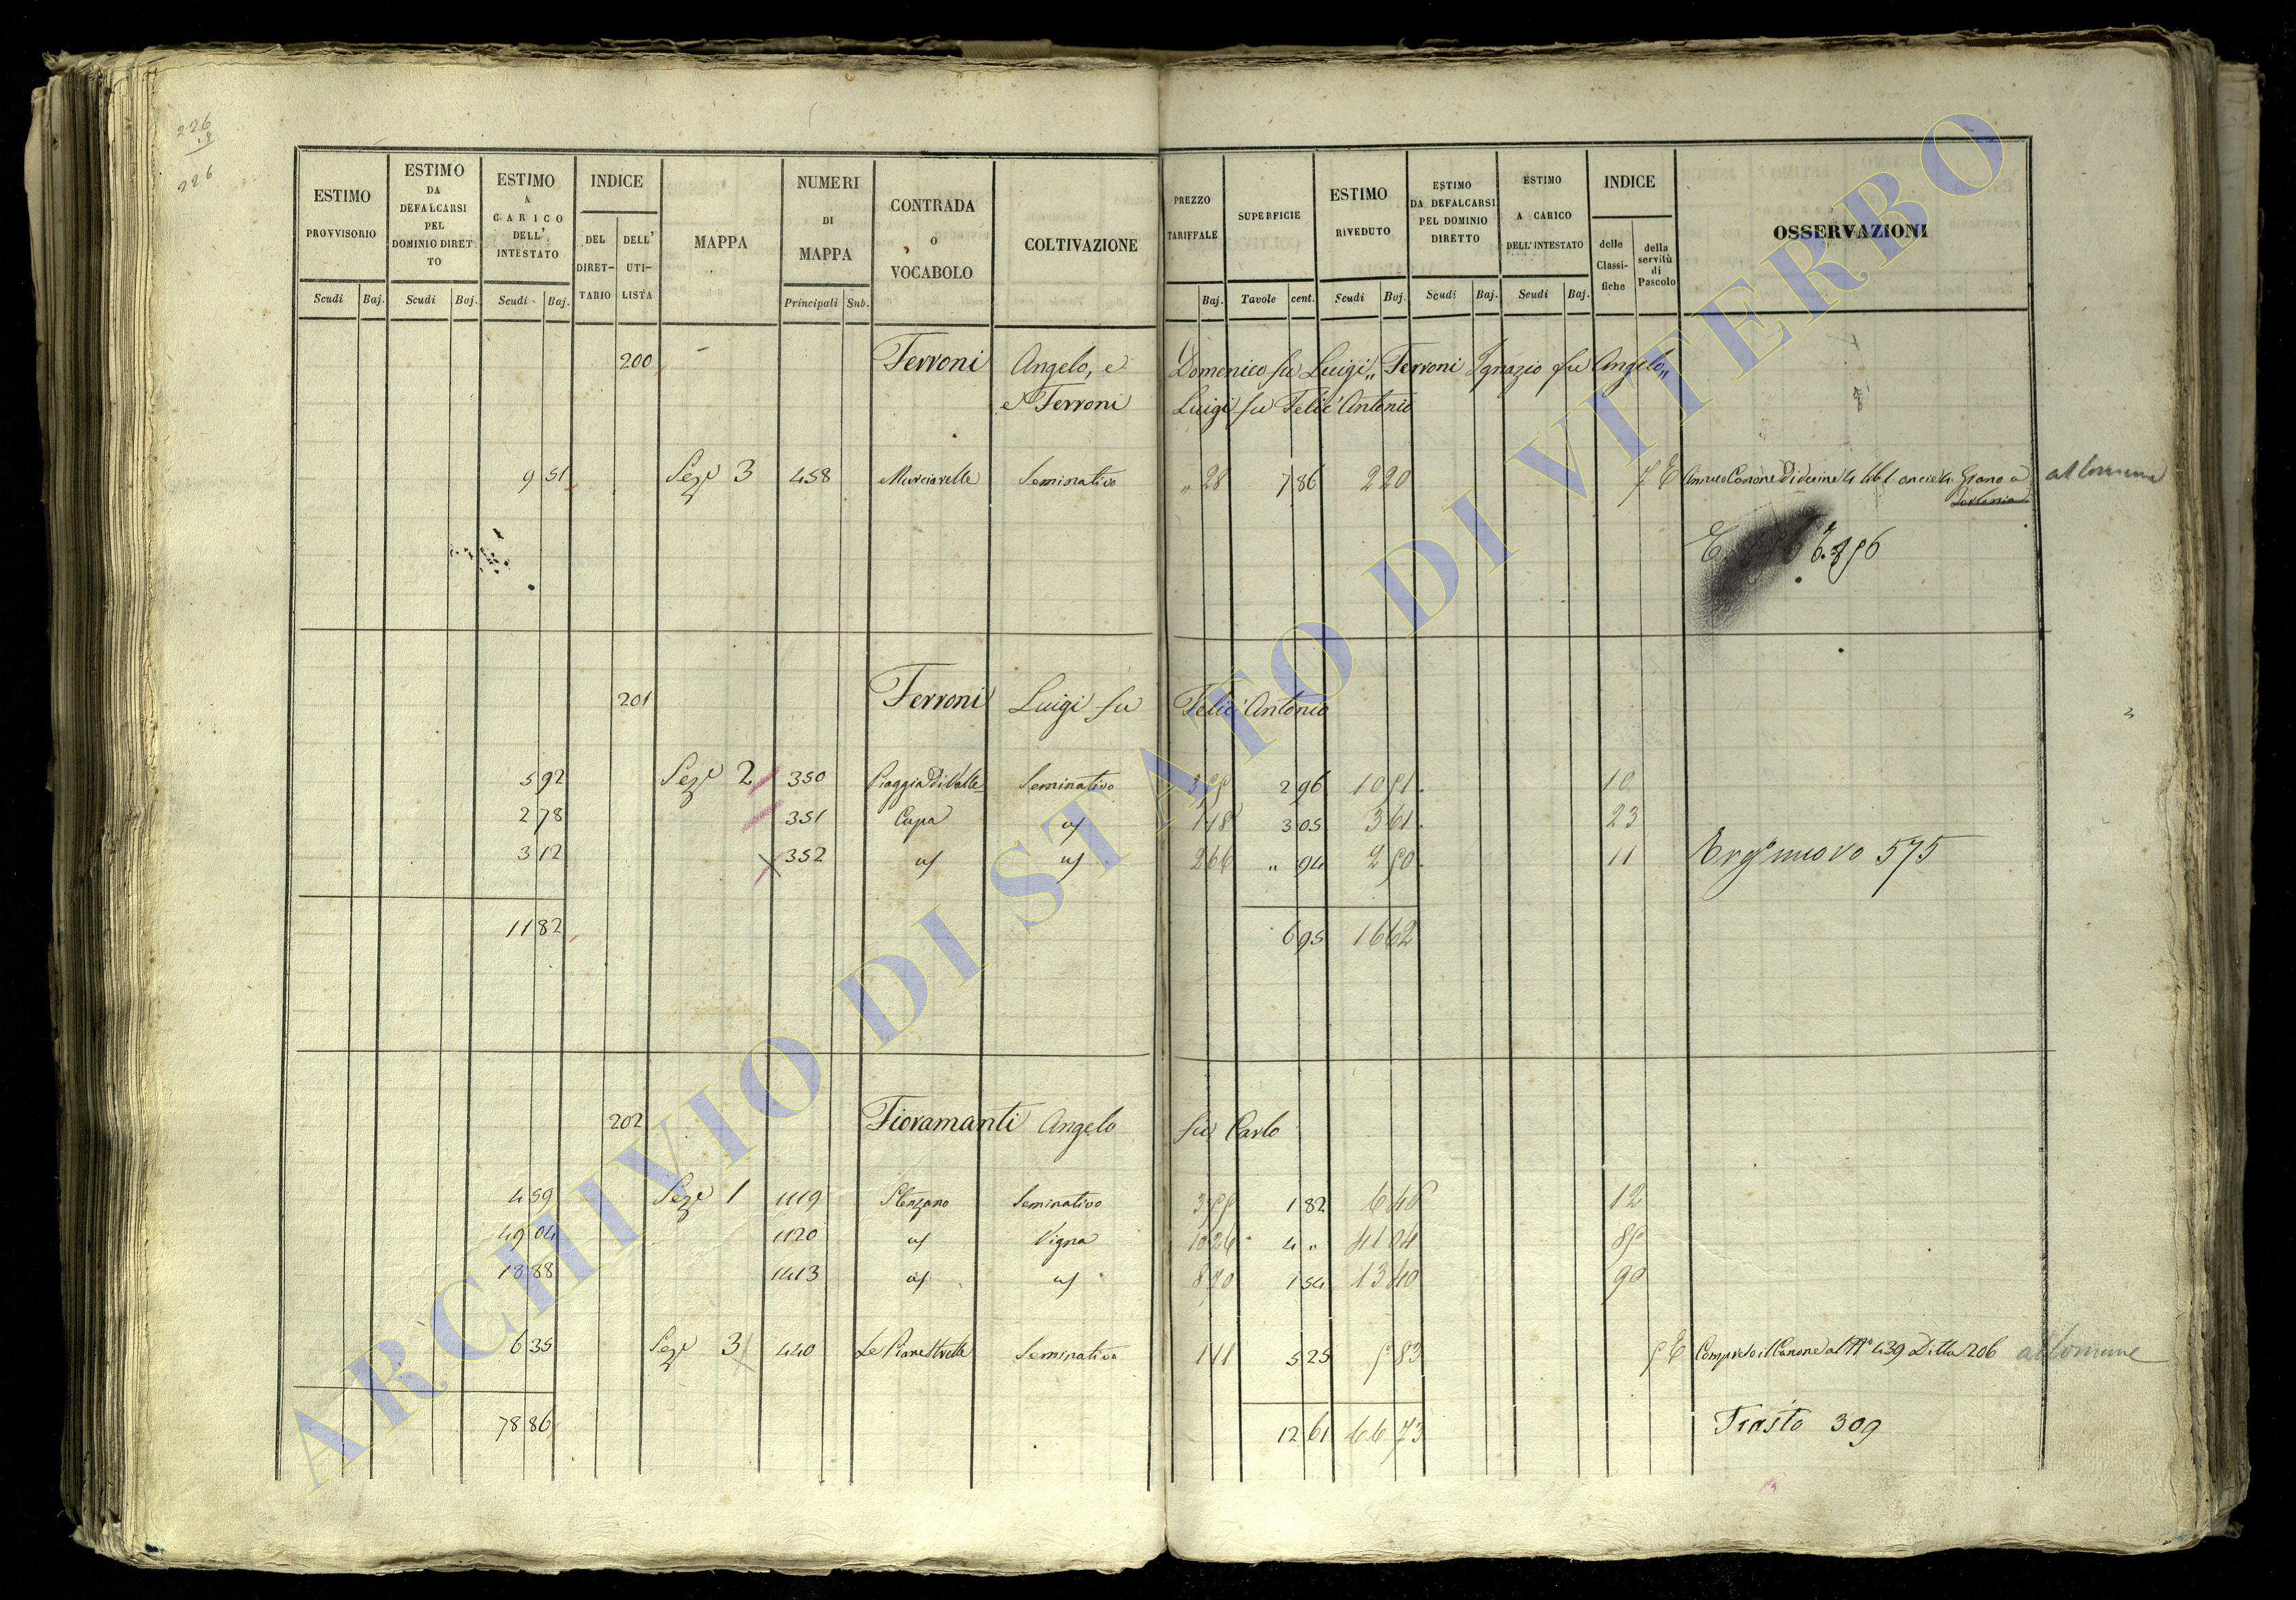 226
226
ESTIMO PROVVISORIO
ESTIMO DA DEFALCARSI PEL DOMINIO DIRETTO
ESTIMO A CARICO DELL' INTESTATO
INDICE
DEL DIRETTARIO
DELL' UTILISTA
MAPPA
NUMERI DI MAPPA
CONTRADA O VOCABOLO
COLTIVAZIONE
PREZZO TARIFFALE
SUPERFICIE
ESTIMO RIVEDUTO
ESTIMO DA DEFALCARSI PEL DOMINIO DIRETTO
ESTIMO A CARICO DELL'INTESTATO
INDICE
delle Classifiche
della servitù di Pascolo
OSSERVAZIONI
Scudi Baj. Scudi Baj. Scudi Baj. Principali Sub. Baj. Tavole cent. Scudi Baj. Scudi Baj. Scudi Baj.
200 Ferroni Angelo, e Domenico fu Luigi,, Ferroni Ignazio fu Angelo,,
e Ferroni Luigi fu Felic'Antonio
9 51 Seze 3 458 Murciarelle Seminativo " 28 7 86 2 20 7 E Annuo Canone Grano a al Comune
201 Ferroni Luigi fu Felic'Antonio
5 92 Seze 2 350 Piaggia di Valle Seminativo 2 96
2 78 351 Cupa 118 3 05 3 61 23
3 12 352 266 " 94 11 nuovo 575
11 82 6 95 16 62
202 Fioramanti Angelo fu Carlo
4 59 Seze 1 1119 Stenzano Seminativo 1 82 12
49 04 1120 Vigna 10 26 4 " 41 04
18 88 1413 1 54 13 40 90
6 35 Seze 3 440 Seminativo 111 5 25 5 83 E Compreso il Canone al No 439 Ditta 206 al Comune
78 86 12 61 66 73 309
ARCHIVIO DI STATO DI VITERBO